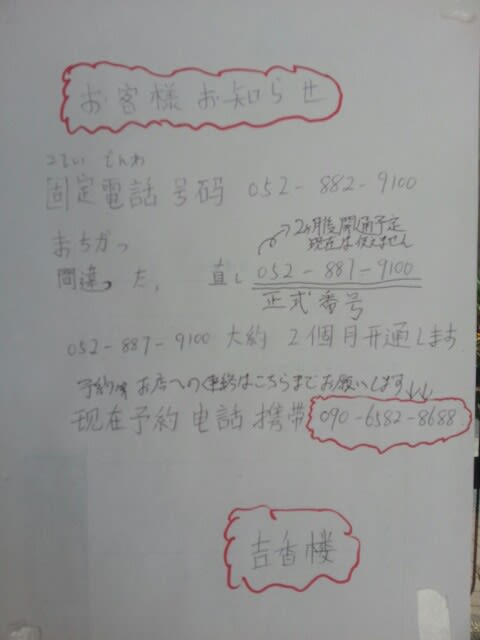 お客様お知らせ
こてい でんわ
固定電話号码 052-882-9100
→2ヶ月後開通予定
現在は使えません
まちがっ
間違った, 直し 052-887-9100
正式番号
052-887-9100 大約 2個月开通します
予約やお店への連絡はこちらまでお願いします↓↓
现在予約 电話 携帯 090-6582-8688
吉香楼